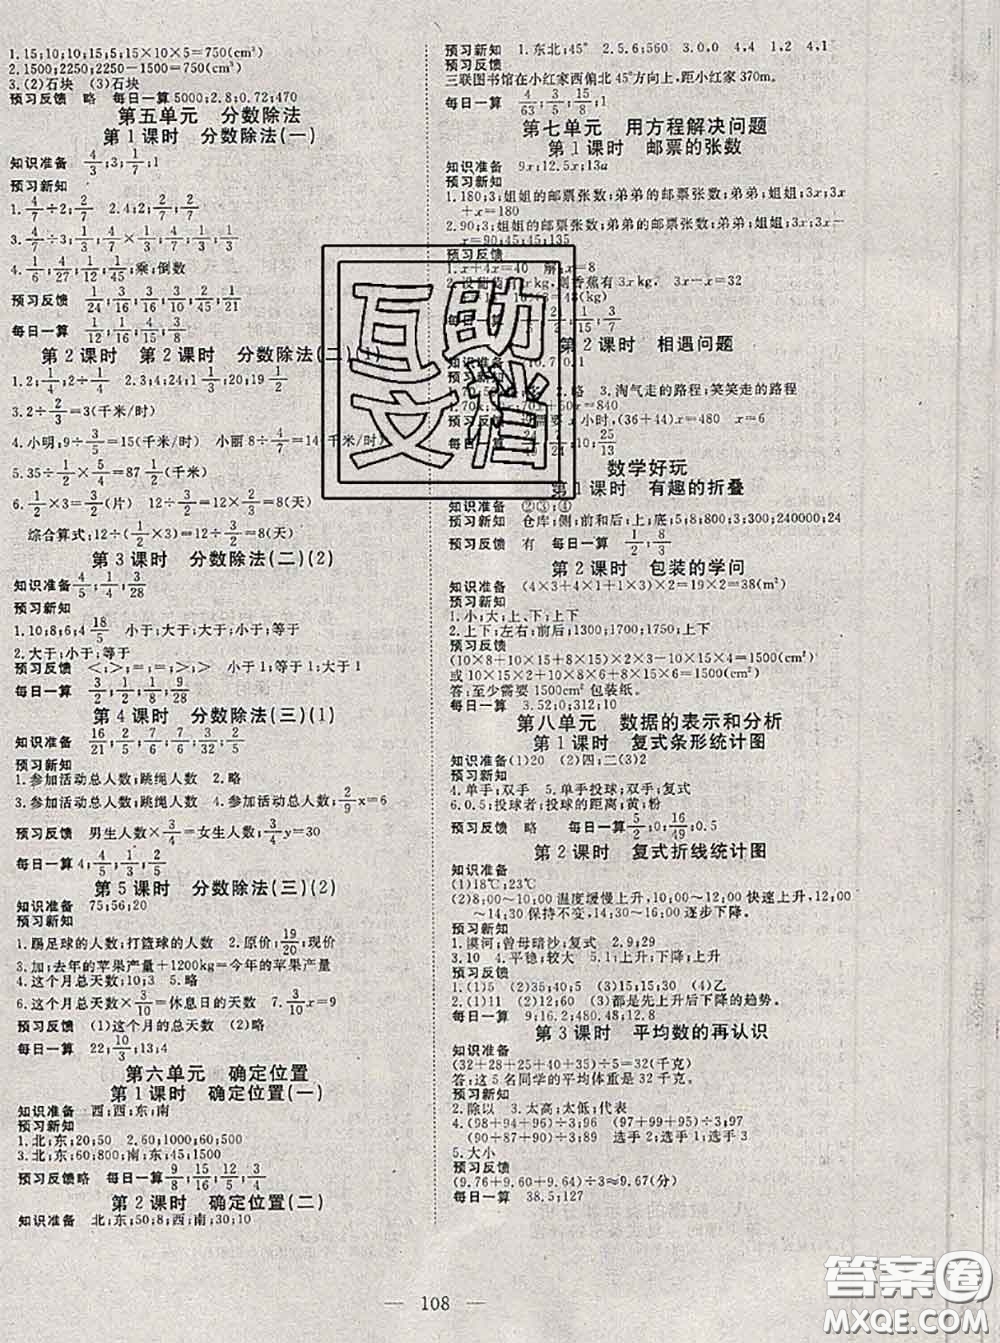 1.15;10;10;15;5;15×10×5=750(cm³)
2.1500;2250;2250-1500=750(cm³)
3.(2)石块 (3)石块
预习反馈 略 每日一算 5000;2.8;0.72;470
第五单元 分数除法
第1课时 分数除法(一)
知识准备 4/3;3;1/7;1
预习新知
1.4/7÷2;2/7 2.4;2/7;1/2;2/7
3.4/7÷3;1/3;4/7;1/3;4/21
4.1/6;4/27;1/12;1/45;乘;倒数
预习反馈 2/21;1/24;3/16;1/10;1/16;2/5;1/21
每日一算 1/12;1/16;3/16;1/18
第2课时 第2课时 分数除法(二)(1)
3.2÷2/3=3(千米/时)
4.小明:9÷3/5=15(千米/时) 小丽
5.35÷1/2×5/2=87 1/2(千米)
6.1/2×3=3/2(片) 12÷3/2=8(天)
综合算式:12÷(1/2×3)=12÷3/2=8(天)
第3课时 分数除法(二)(2)
知识准备 4/5;1/4;3/28
预习新知
1.10;8;6;4 18/5 小于;大于;大于;小于;等于
2.大于;小于;等于
预习反馈 <;>;=;=;>;> 小于1;等于1;大于1
每日一算 3/2;1/2;1/8;9/28
第4课时 分数除法(三)(1)
知识准备 16/21;2/5;7/6;7/6;3/32;2/5
预习新知
1.参加活动总人数;跳绳人数 2.略
3.参加活动总人数;跳绳人数 4.参加活动总人数;2/9x=6
预习反馈 男生人数×3/4=女生人数;3/4y=30
每日一算 4;4/5;1/5;2/5
第5课时 分数除法(三)(2)
知识准备 75;56;20
预习新知
1.踢足球的人数;打篮球的人数 2.原价;19/20;现价
3.加;去年的苹果产量+1200kg=今年的苹果产量
4.这个月总天数;10;3 5.略
6.这个月总天数×3/10=休息日的天数 7.3/10x=9
预习反馈 (1)这个月的总天数 (2)略
每日一算 22;10/3;13;4
第六单元 确定位置
第1课时 确定位置(一)
知识准备 西;西;东;南
预习新知
1.北;东;20;50 2.60;1000;60;500
3.北;东;60;800;南;东;45;1500
预习反馈略 每日一算 9/8;8/15;12/15;3/4
第2课时 确定位置(二)
知识准备 北;东;50;8;西;南;30;10
预习新知 1.东北;45° 2.5.6;560 3.0,2 4,4 1,2 4,1
预习反馈
三联图书馆在小红家西偏北45°方向上,距小红家370m。
每日一算 4/63;3/5;15/8;1
第七单元 用方程解决问题
第1课时 邮票的张数
知识准备 9x;12.5x;13a
预习新知
1.180;3;姐姐的邮票张数;弟弟的邮票张数;弟弟;姐姐;3x;3x
+x=180
2.90;3;姐姐的邮票张数;弟弟的邮票张数;弟弟;姐姐;3x;3x-
x=90;45;45;135
预习反馈
1.x+4x=40 解:x=8
第2课时 相遇问题
预习新知
2.略 3.淘气走的路程;笑笑走的路程
数学好玩
第1课时 有趣的折叠
知识准备 ②③;④
预习新知 仓库;侧;前和后;上;底;5;8;800;3;300;240000;24
预习反馈 有 每日一算 1/2;8/3
第2课时 包装的学问
知识准备 (4×3+4×1+1×3)×2=38(m²)
预习新知
1.小;大;上、下;上下
2.上下;左右;前后;1300;1700;1750;上下
预习反馈
(10×8+10×15+8×15)×2×3-10×15×4=1500(cm²)
或10×15×2+10×8×6+8×15×6=1500(cm²)
答:至少需要1500cm²包装纸。
每日一算 3.52;0;312;10
第八单元 数据的表示和分析
第1课时 复式条形统计图
知识准备(1)20 (2)四;二(3)2
预习新知
4.单手;双手 5.单手投球;双手;复式
6.0.5;投球者;投球的距离;黄;粉
预习反馈 略 每日一算 5/2;0;16/49;0.5
第2课时 复式折线统计图
知识准备
(1)18℃;23℃
(2)8:00~10:00温度缓慢上升,10:00~12:00快速上升,12:00
~14:30保持不变,14:30~16:00逐步下降。
预习新知
1.漠河;曾母暗沙;复式 2.9;29
3.10 4.平稳;较大 5.略 6.上升;下降
预习反馈
1.(1)5 (2)35;40;5 (3)15;15;30 (4)乙
2.(1)11 (2)12;60 (3)都是先上升后下降的趋势。
每日一算 9;16.2;480.48;12.8
第3课时 平均数的再认识
知识准备
(32+28+25+40+35)÷5=32(千克)
答:这5名同学的平均体重是32千克。
预习新知
2.除以 3.太高;太低;代表
4.(92+94+96+94)÷3≈96 (97+99+95)÷3=97
(90+87+94)÷3≈90 选手2;选手1;选手3
5.大小
预习反馈
(9.76+9.60+9.64)÷3≈9.67(分)
每日一算 38.5;127
互助
文档
答案圈
MXQE.COM
108